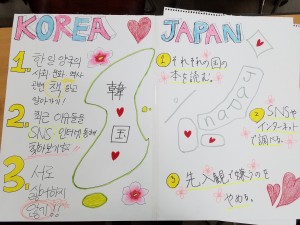 KOREA
1. 한일 양국의
사회 문화 역사
관련 책 읽고
알아가기!
2. 최근 이슈들을
SNS 인터넷 통해
찾아보기
3. 서로
싫어하지
않기!
韓
国
JAPAN
1 それぞれの国の
本を読む。
Japan
2 SNSや
インターネット
で調べる。
3 先入観で嫌うのを
やめる。